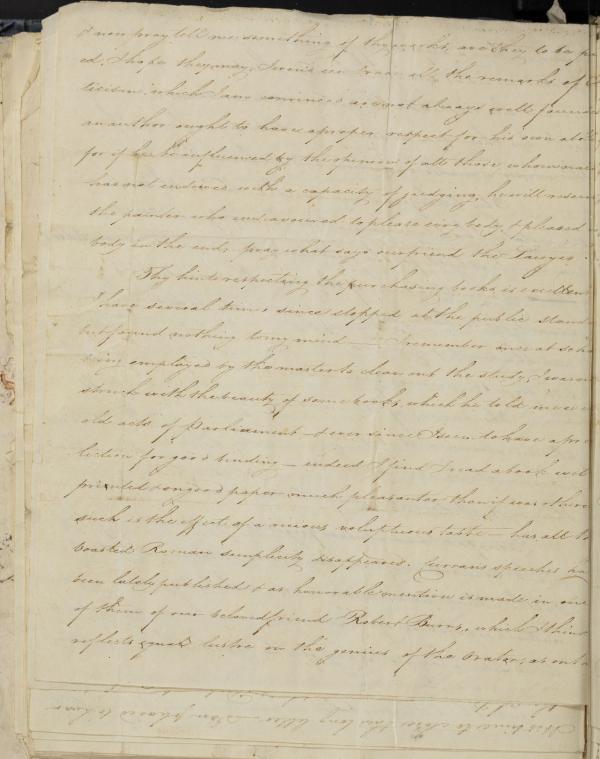 & now pray tell me something of thy works, are they to be pu
ed, I hope they may, I would not mind all the remarks of C
ticism which I am convinced are not always well founded
an author ought to have a proper respect for his own abi
for if he be influenced by the opinion of all those whom na
has not endowed with a capacity of judging, he will resem
the painter who endeavoured to please every body, & pleased n
body in the end, pray what says our friend the Lawyer.
Thy hint respecting the purchasing books is excellent
I have several times since stopped at the public stand
but found nothing to my mind — I remember once at scho
being employed by the master to clear out the study, I was m
struck with the beauty of some books, which he told me were
old acts of Parliament — & ever since I seem to have a pre
liction for good binding — indeed I find I read a book well
printed & on good paper much pleasanter than if was other
such is the effect of a vicious voluptuous taste — thus all th
boasted Roman simplicity disappears. Currans speeches ha
been lately published & as honorable mention is made in one
of them of our beloved friend Robert Burns, which I think
reflects equal lustre on the genius of the Orator, as on h
It is time to close this long letter. I am pleased to hear